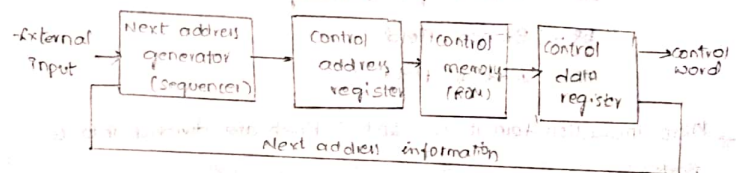 External
input
Next address
generator
(sequencer)
control
address
register
control
memory
(ROM)
control
data
register
control
word
Next address information